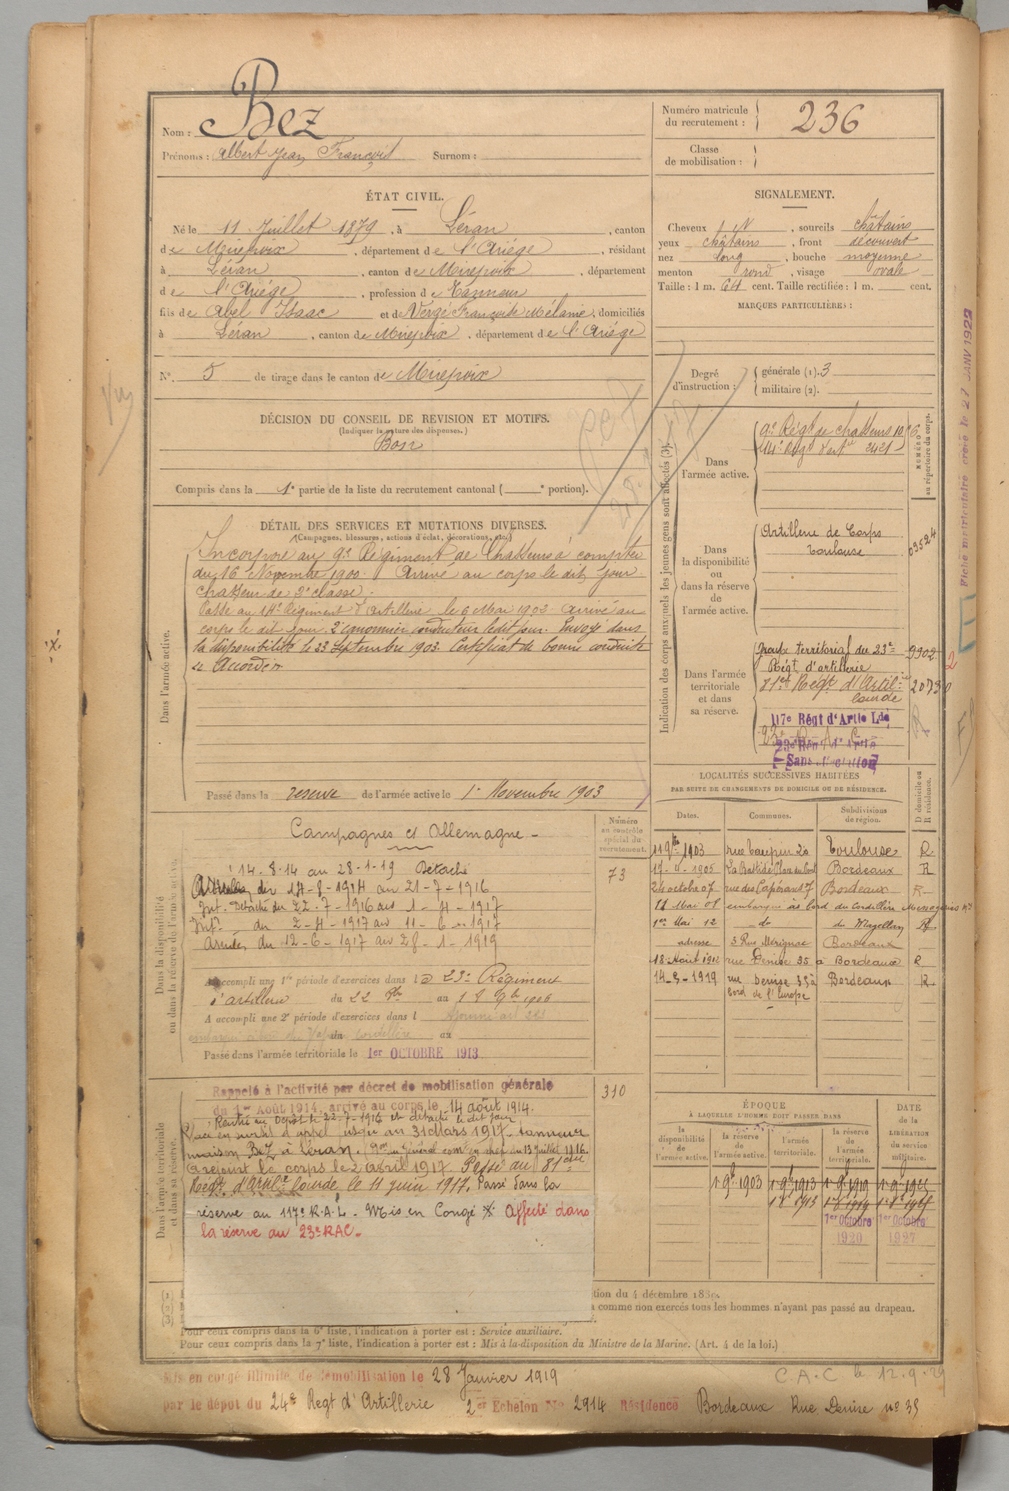 Nom : Bez
Prénoms : Albert Jean François Surnom :
Numéro matricule du recrutement : 236
Classe de mobilisation :
ÉTAT CIVIL.
Né le 11 Juillet 1879, à Léran, canton
de Mirepoix, département de l'Ariége, résidant
à Léran, canton de Mirepoix, département
de l'Ariége, profession de Tanneur
fils de Abel Isaac et de Vergé Françoise Mélanie, domiciliés
à Léran, canton de Mirepoix, département de l'Ariége
N°. 5 de tirage dans le canton de Mirepoix
SIGNALEMENT.
Cheveux N, sourcils châtains
yeux châtains, front découvert
nez long, bouche moyenne
menton rond, visage ovale
Taille : 1 m. 64 cent. Taille rectifiée : 1 m. cent.
MARQUES PARTICULIÈRES :
Degré d'instruction : générale (1). 3
militaire (2).
DÉCISION DU CONSEIL DE REVISION ET MOTIFS.
(Indiquer la nature des dispenses.)
Bon
Compris dans la 1e partie de la liste du recrutement cantonal ( e portion).
DÉTAIL DES SERVICES ET MUTATIONS DIVERSES.
(Campagnes, blessures, actions d'éclat, décorations, etc.)
Dans l'armée active.
Incorporé au 9e Régiment de Chasseurs à compter
du 16 Novembre 1900. Arrivé au corps le dit jour
chasseur de 2e classe.
Passé au 14e Régiment d'Artillerie le 6 Mai 1903 Arrivé au
corps le dit jour. 2e canonnier conducteur le dit jour. Envoyé dans
la disponibilité le 23 Septembre 1903 Certificat de bonne conduite
Accordé
Passé dans la réserve de l'armée active le 1er Novembre 1903
Indication des corps auxquels les jeunes gens sont affectés (3).
NUMÉRO au répertoire du corps.
Dans l'armée active.
9e Régt de chasseurs
14e Régt d'artie 2421
Dans la disponibilité ou dans la réserve de l'armée active.
Artillerie de Corps
Toulouse
03524
Dans l'armée territoriale et dans sa réserve.
Groupe territorial du 23e 9902
Régt d'artillerie
81e Régt d'Artil.ie 2073
lourde
117e Régt d'Artie Lde
Fiche matriculaire créée le 27 JANV 1922
LOCALITÉS SUCCESSIVES HABITÉES
PAR SUITE DE CHANGEMENTS DE DOMICILE OU DE RÉSIDENCE.
Dates. Communes. Subdivisions de région. D domicile ou R résidence.
11 9bre 1903 rue Taupin 20 Toulouse R
1905 La Bastide Bordeaux R
24 octobre 07 rue des 7 Bordeaux R
11 Mai 08 embarqué à bord du Cordillère Messageries Mes
1er Mai 12 do du Magellan R
adresse 3 Rue Mérignac Bordeaux
18 Août 1912 rue Denise 35 à Bordeaux R
14-3-1919 rue Denise 35 à Bordeaux R
bord de l'Europe
Dans la disponibilité ou dans la réserve de l'armée active.
Numéro au contrôle spécial du recrutement.
73
Campagnes ct Allemagne
14.8.14 au 28-1-19 Détaché
du 14-8-1914 au 21-7-1916
Int. Détaché du 22-7-1916 au 1-4-1917
Intr. du 2-4-1917 au 11-6-1917
Armées du 12-6-1917 au 28-1-1919
A accompli une 1re période d'exercices dans le 23e Régiment
d'artillerie du 22 au 18 9bre 1906
A accompli une 2e période d'exercices dans l
du au
Passé dans l'armée territoriale le 1er OCTOBRE 1913
Dans l'armée territoriale et dans sa réserve.
310
Rappelé à l'activité par décret de mobilisation générale
du 1er Août 1914, arrivé au corps le 14 août 1914.
Rentré au Dépôt le 22-7-1916 et détaché le dit jour
Placé en sursis d'appel jusqu'au 31 Mars 1917. tanneur
maison Bez à Léran. Général com. en chef du 13 juillet 1916.
A rejoint le corps le 2 avril 1917. Passé au 81e
Régt d'Artie lourde le 11 juin 1917. Passé dans la
réserve au 117e R.A.L. Mis en Congé Affecté dans
la réserve au 23e R.A.C.
ÉPOQUE
À LAQUELLE L'HOMME DOIT PASSER DANS
DATE DE LA LIBÉRATION du service militaire.
la disponibilité de l'armée active. la réserve de l'armée active. l'armée territoriale. la réserve de l'armée territoriale.
1 9bre 1903 1 9bre 1913 1 9bre 1919 1 9bre 1925
1 8bre 1913 1 8bre 1919 1 8bre 1925
1er Octobre 1er Octobre
1920 1927
tion du 4 décembre
a comme non exercés tous les hommes n'ayant pas passé au drapeau.
Pour ceux compris dans la 6e liste, l'indication à porter est : Service auxiliaire.
Pour ceux compris dans la 7e liste, l'indication à porter est : Mis à la disposition du Ministre de la Marine. (Art. 4 de la loi.)
Mis en congé illimité de démobilisation le 28 Janvier 1919
par le dépôt du 24e Regt d'Artillerie 2e Echelon No 2914 Résidence Bordeaux Rue Denise no 35
C.A.C le 12.9.29